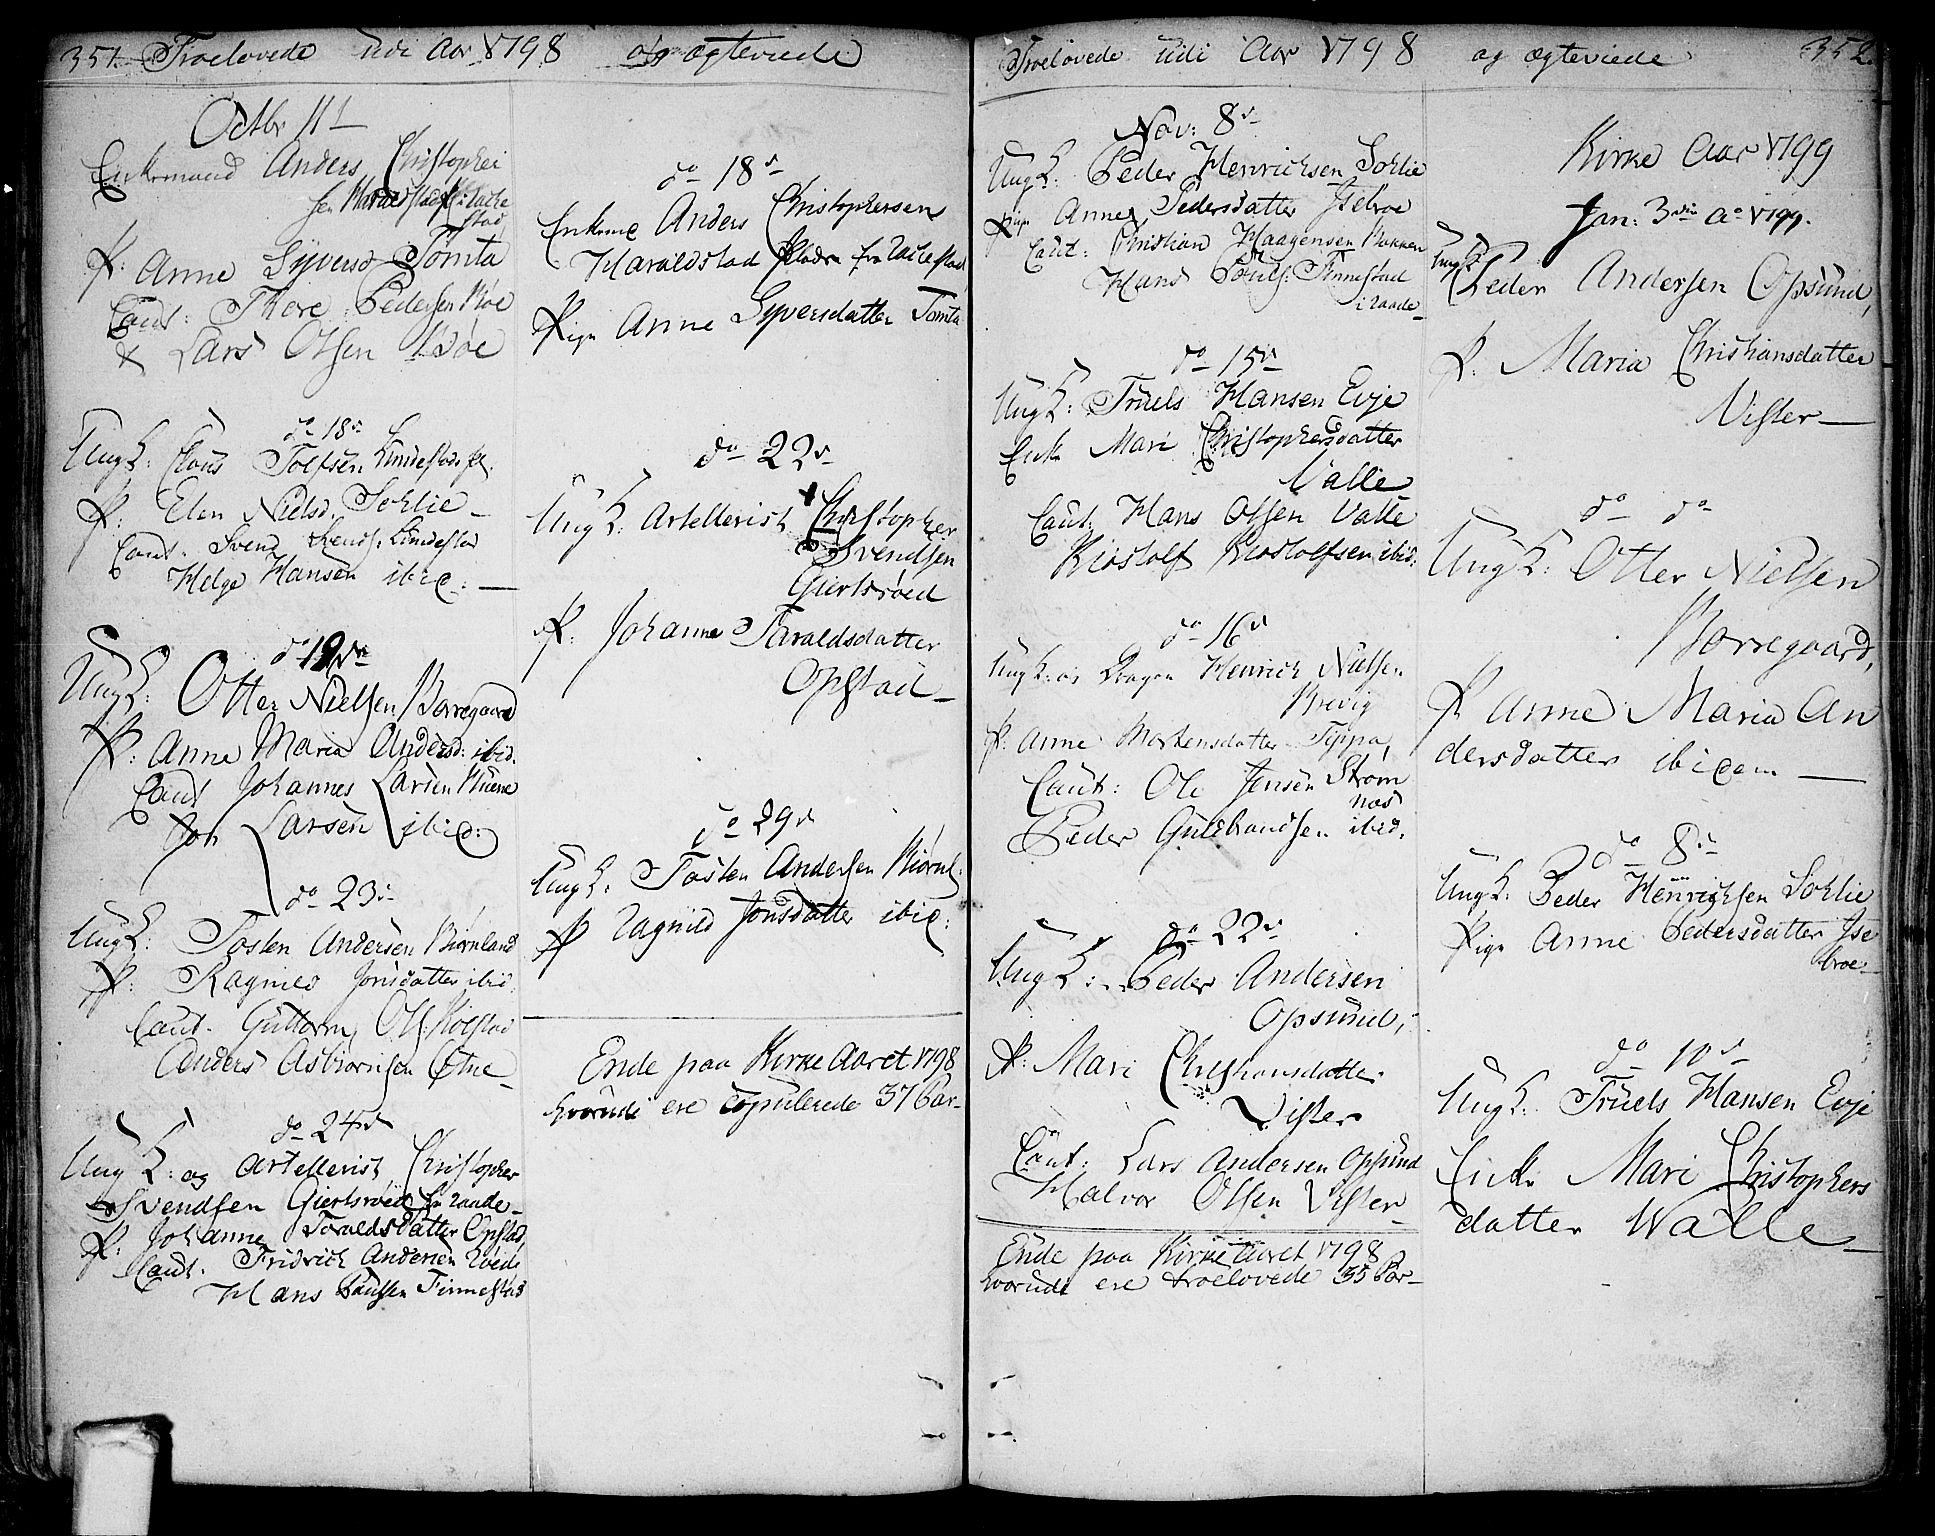 351. Troelovede udi Aar 1798 og ægteviede
Octbr 11
Enkemand Anders Christophei
sen Haraldstad Rakke
stad
P: Anne Syversd Tomta
Caut: Thore Pedersen Bøe
& Lars Olsen Bøe
do 18
Ung K: Claus Tolfsen Lundestad
P: Elen Nielsd. Sohlie
Caut. Svend Svends: Lundestad
Helge Hansen ibid:
do 19
Ung K: Otter Nielsen Borregaard
P: Anne Maria Andersd: ibid.
Caut Johannes Larsen
Joh Larsen ibid:
do 23
Ung K: Tosten Andersen Biørnland
P: Ragnild Jonsdatter ibid
Caut. Guttorm Ols: Kolstad
Anders Asbiørnsen Østne
do 24
Ung K: og Artellerist Christopher
Svendsen Giertsrøed fra Raade
P: Johanne Taraldsdatter Opstad,
Caut. Fridrich Andersen Røed
Hans Paulsen Finnestad
do 18
Enkeme Anders Christophersen
Haraldstad Pladsen fra Rakkestad
Pige Anne Syversdatter Tomta
do 22
Ung K: Artellerist Christopher
Svendsen
Giertsrøed
P: Johanne Taraldsdatter
Opstad
do 29
Ung K: Tosten Andersen Biørnl:
P Ragnild Jonsdatter ibid:
Ende paa Kirke Aaret 1798
hvorudi ere copulerede 37 Par
Troelovede udi Aar 1798 og ægteviede 352.
Nov: 8
Ung K: Peder Henrichsen Sohlie
Pige Anne Pedersdatter Isebroe
Caut: Christian Haagensen Bakken
Hans Pouls: Finnestad
i Raade
do 15
Ung K: Truels Hansen Evje
Enke Mari Christophersdatter
Valle
Caut: Hans Olsen Valle
Kiostolf Kiostolfsen ibid:
do 16
Ung K: og Dragon Henrich Nielsen
Brevig
P: Anne Mortensdatter Tippa,
Caut: Ole Jensen Strøm
næs
Peder Guldbrandsen ibid.
do 22
Ung K: Peder Andersen
Opsund,
P: Mari Christiansdatter
Vister
Caut: Lars Andersen Opsund
Halvor Olsen Vister
Ende paa Kirke Aaret 1798
hvorudi ere troelovede 35 Par
Kirke Aar 1799
Jan: 3 Ao 1799.
Ung K: Peder Andersen Opsund,
P: Maria Christiansdatter
Vister
do do
Ung K: Otter Nielsen
Borregaard,
P Anne Maria An
dersdatter ibidem
do 8
Ung K: Peder Henrichsen Sohlie
Pige Anne Pedersdatter Ise
broe
do 10
Ung K: Truels Hansen Evje
Enke Mari Christophers
datter Walle